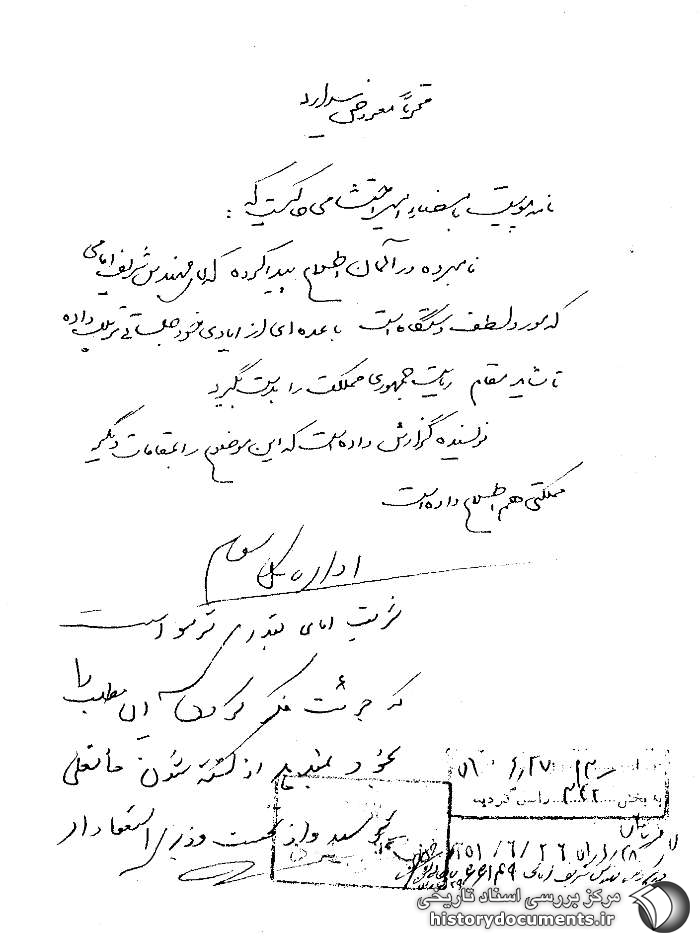 محترماً معروض میدارد
نامه پیوست بامضاء امیر احتشامی حاکیست که :
نامبرده در آلمان اطلاع پیدا کرده که مهندس شریف امامی
که مورد لطف دستگاه است با عده ای از ایادی خود جلساتی ترتیب داده
تا شاید مقام ریاست جمهوری مملکت را بدست بگیرد
نویسنده گزارش داده است که این موضوع را بمقامات دیگر
مملکتی هم اطلاع داده است
اداره کل سوم
شریف امامی بقدری ترسو است
که جرئت فکر کردن این مطلب را
بخود نمیدهد از کشته شدن
نخست وزیری استعفا داد
۵۱ ۶/۲۷
به بخش ۳۴۲ راس گردید
۵۱/۶/۲۶
مرکز بررسی اسناد تاریخی
historydocuments.ir